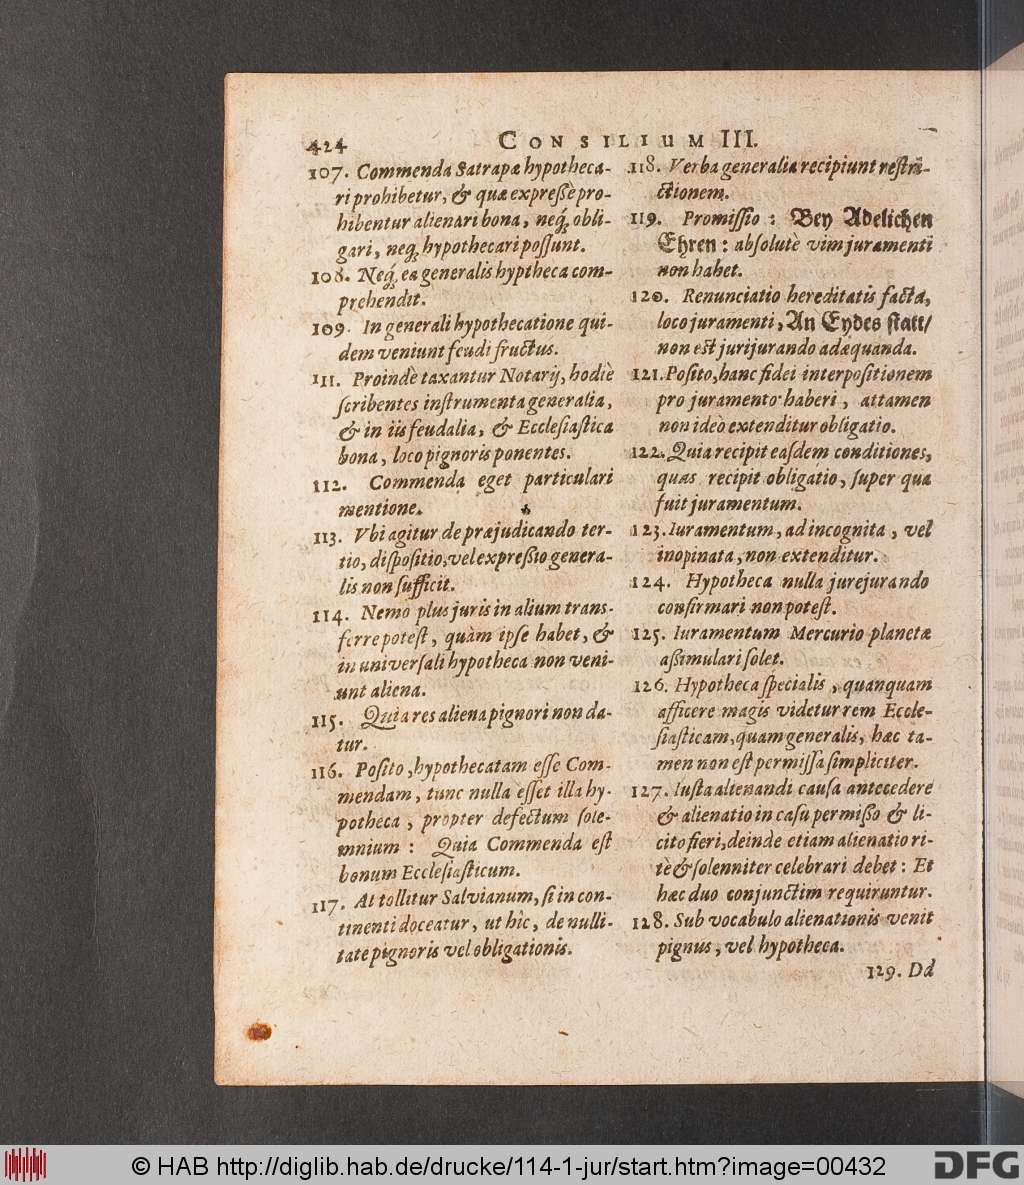 424
CONSILIUM III.
107. Commenda Satrapæ hypotheca-
ri prohibetur, & quæ expreſſè pro-
hibentur alienari bona, neq́; obli-
gari, neq; hypothecari poſſunt.
108. Neq́; ea generalis hyptheca com-
prehendit.
109. In generali hypothecatione qui-
dem veniunt feudi fructus.
111. Proindè taxantur Notarij, hodiè
ſcribentes inſtrumenta generalia,
& in iis feudalia, & Eccleſiaſtica
bona, loco pignoris ponentes.
112. Commenda eget particulari
mentione.
113. Vbi agitur de præjudicando ter-
tio, diſpoſitio, vel expreſſio genera-
lis non ſufficit.
114. Nemo plus juris in alium trans-
ferre poteſt, quàm ipſe habet, &
in univerſali hypotheca non veni-
unt aliena.
115. Quia res aliena pignori non da-
tur.
116. Poſito, hypothecatam eſſe Com-
mendam, tunc nulla eſſet illa hy-
potheca, propter defectum ſole-
mnium: Quia Commenda eſt
bonum Eccleſiaſticum.
117. At tollitur Salvianum, ſi in con-
tinenti doceatur, ut hîc, de nulli-
tate pignoris vel obligationis.
118. Verba generalia recipiunt reſtri-
ctionem.
119. Promiſſio: Bey Adelichen
Ehren: abſolutè vim juramenti
non habet.
120. Renunciatio hereditatis facta,
loco juramenti, An Eydes ſtatt/
non eſt jurijurando adæquanda.
121. Poſito, hanc fidei interpoſitionem
pro juramento haberi, attamen
non ideò extenditur obligatio.
122. Quia recipit eaſdem conditiones,
quas recipit obligatio, ſuper qua
fuit juramentum.
123. Iuramentum, ad incognita, vel
inopinata, non extenditur.
124. Hypotheca nulla jurejurando
confirmari non poteſt.
125. Iuramentum Mercurio planetæ
aſſimulari ſolet.
126. Hypotheca ſpecialis, quanquam
afficere magis videtur rem Eccle-
ſiaſticam, quam generalis, hæc ta-
men non eſt permiſſa ſimpliciter.
127. Iuſta alienandi cauſa antecedere
& alienatio in caſu permiſſo & li-
cito fieri, deindè etiam alienatio ri-
tè & ſolenniter celebrari debet: Et
hæc duo conjunctim requiruntur.
128. Sub vocabulo alienationis venit
pignus, vel hypotheca.
129. Dd
© HAB http://diglib.hab.de/drucke/114-1-jur/start.htm?image=00432
DFG